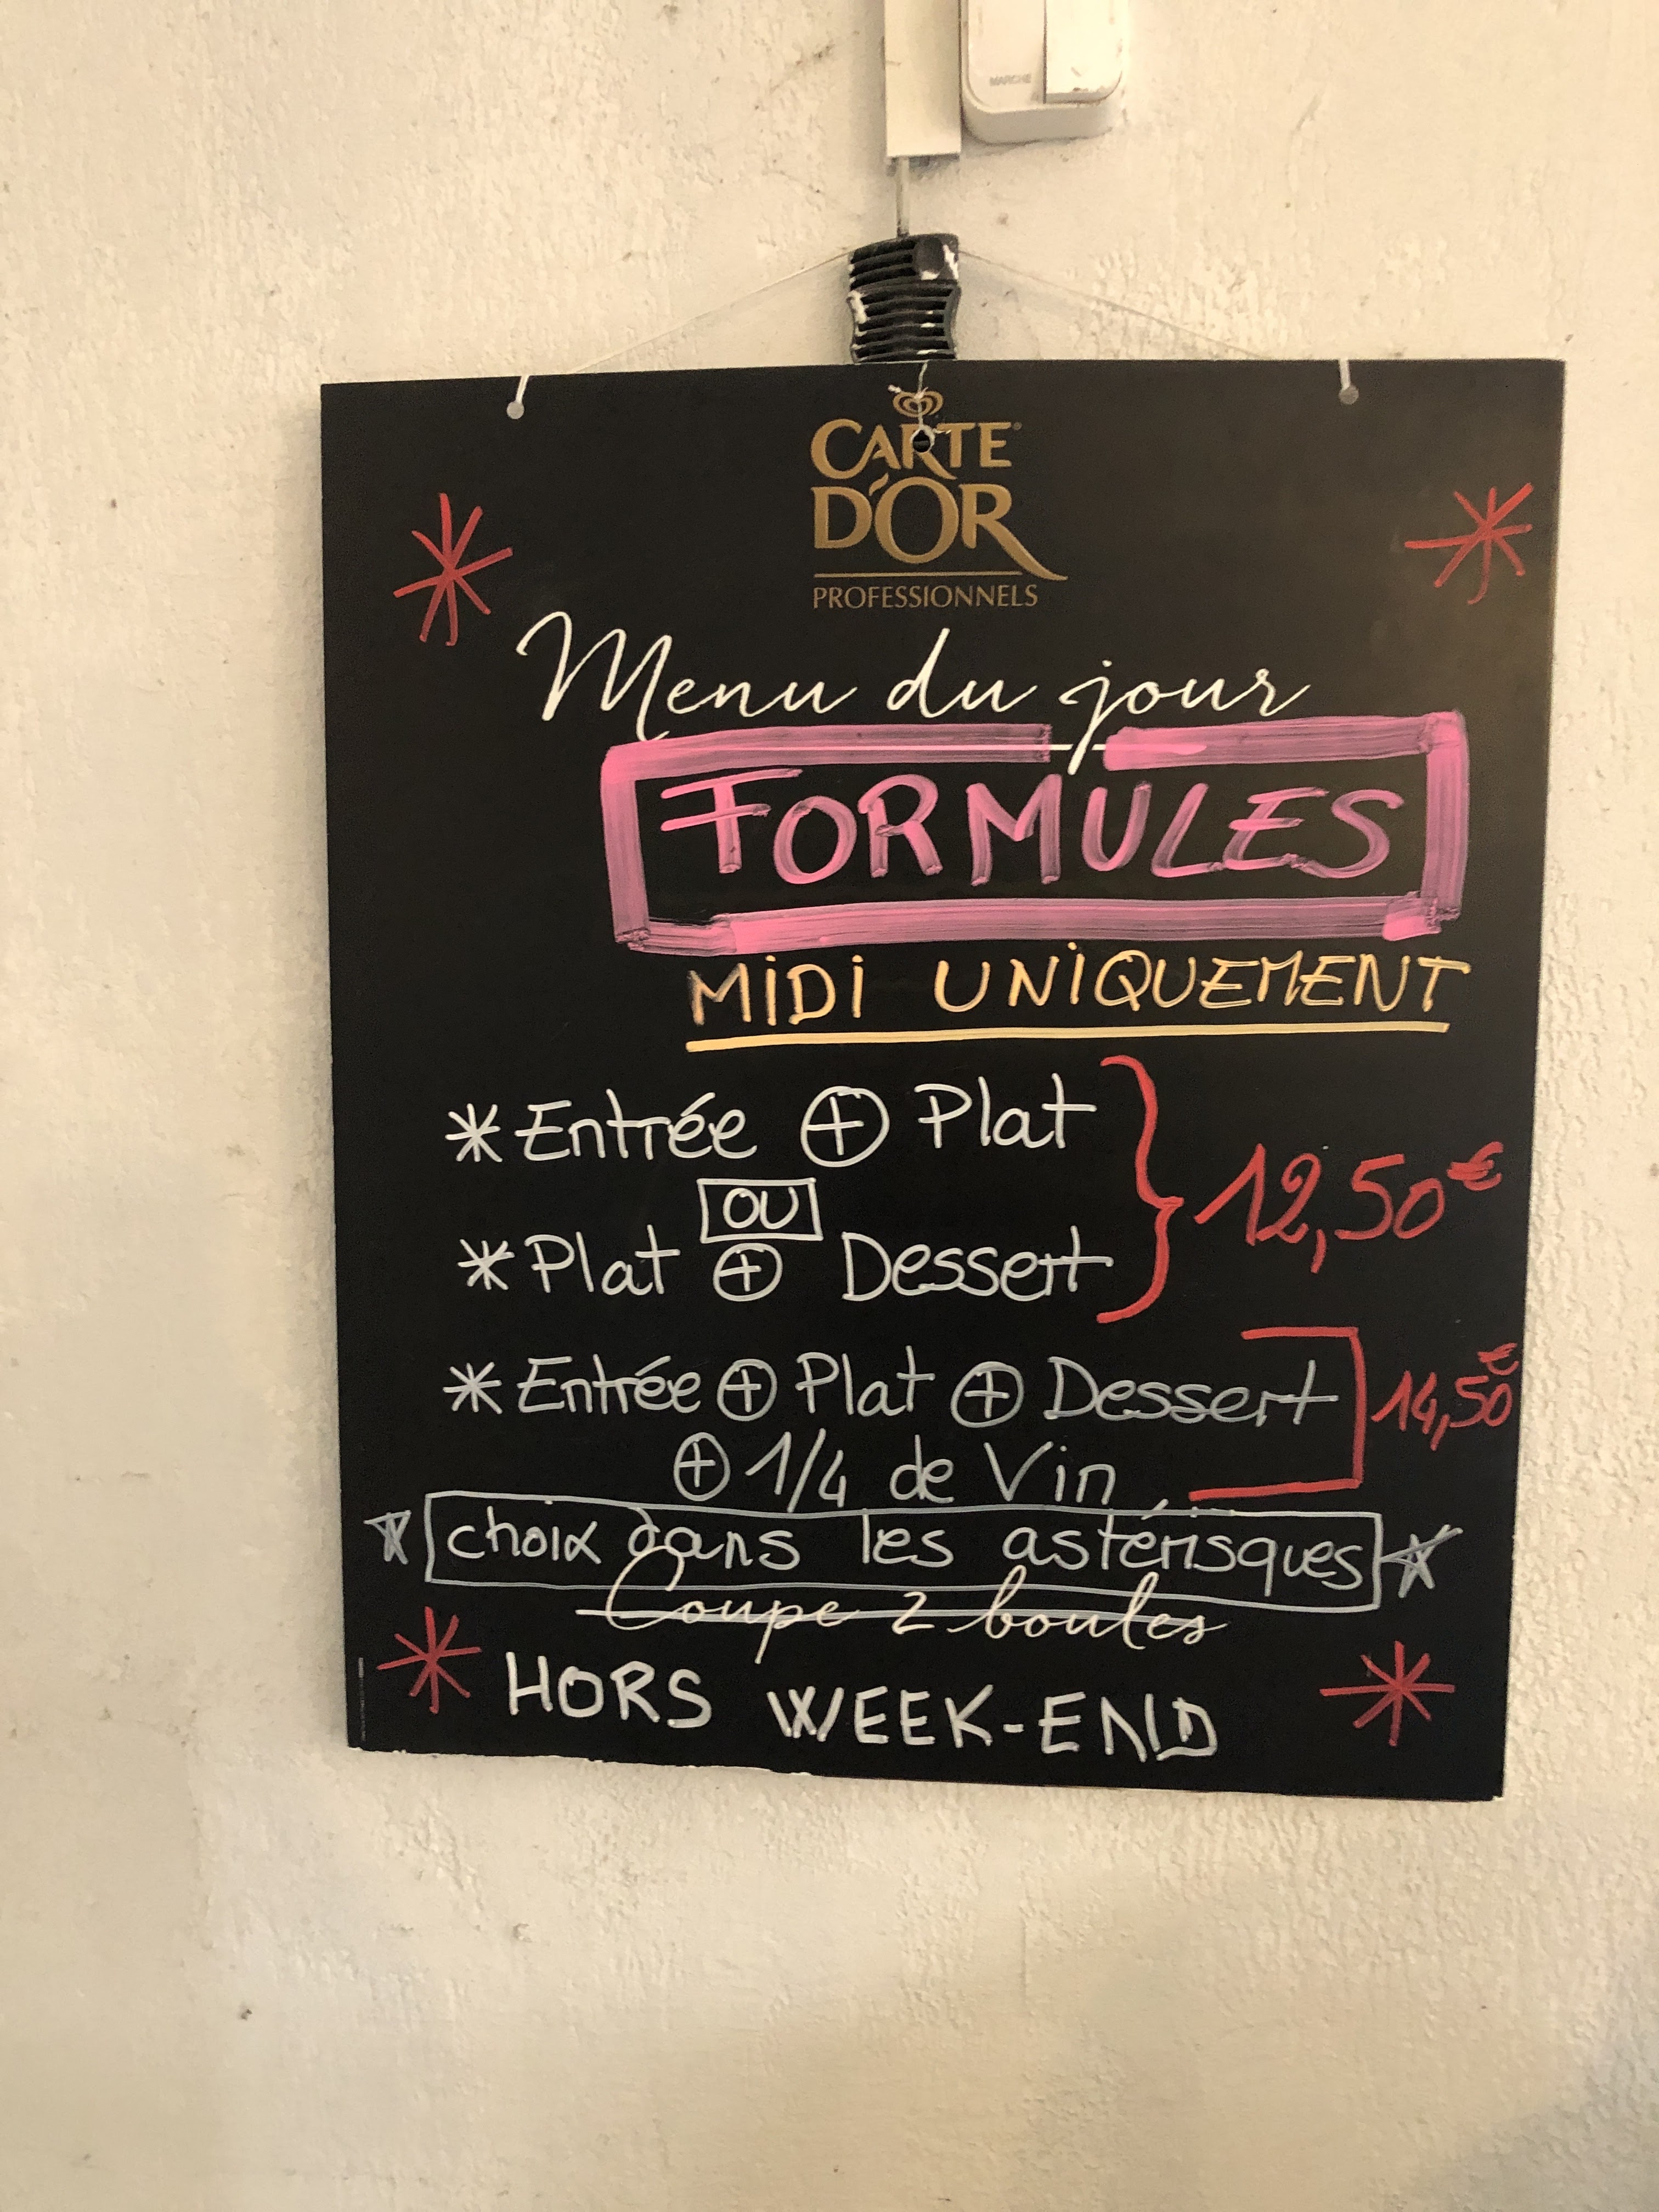 MARCHE
CARTE
D'OR
PROFESSIONNELS
Menu du jour
FORMULES
MIDI UNIQUEMENT
* Entrée + Plat
OU
* Plat + Dessert
12,50€
* Entrée + Plat + Dessert
+ 1/4 de Vin
14,50€
choix dans les astérisques
Coupe 2 boules
HORS WEEK-END